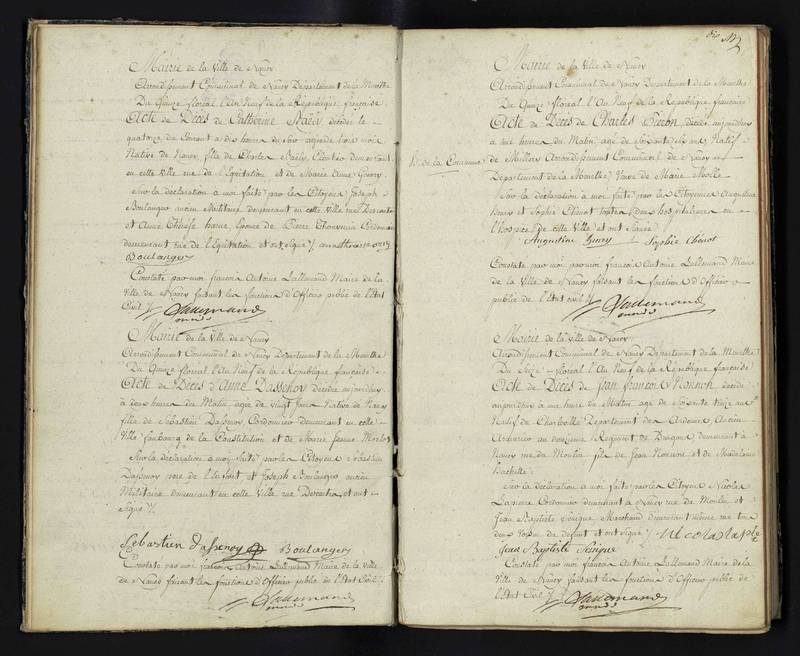 Mairie de la Ville de Nancy
Arrondissement Communal de Nancy Departement de la Meurthe
Du Quinze floreal l'An Neuf de la République française
Acte de Décès de Catherine Baëly décédée le
quatorze du Courant a dix heures du Soir agée de trois mois
Native de Nancy, fille de Charles Baëly, demeurant
en cette Ville rue de l'Equitation et de Marie Anne
Sur la déclaration à moi faite par les Citoyens Joseph
Boulanger ancien Militaire demeurant en cette Ville rue
et Anne Thérése Epouse de Pierre Thouvenin Cordonnier
demeurant rue de l'Equitation et ont Signé
Boulanger
Constaté par moi françois Antoine Lallemand Maire de la
Ville de Nancy faisant les fonctions d'Officier public de l'Etat
Civil
Lallemand
Mairie de la Ville de Nancy
Arrondissement Communal de Nancy Departement de la Meurthe
Du Quinze floreal l'An Neuf de la République française
Acte de Décès d'Anne Dassenoy décédée aujourdhuy
à deux heures du Matin, agée de vingt Jours Native de Nancy
fille de Sébastien Dassenoy Cordonnier demeurant en cette
Ville faubourg de la Constitution et de Marie Jeanne
Sur la déclaration à moi faite par les Citoyens Sébastien
Dassenoy père de l'Enfant et Joseph Boulanger ancien
Militaire demeurant en cette Ville rue et ont
Signé
Sebastien Dassenoy Boulanger
Constaté par moi françois Antoine Lallemand Maire de la Ville
de Nancy faisant les fonctions d'Officier public de l'Etat Civil
Lallemand
Mairie de la Ville de Nancy
Arrondissement Communal de Nancy Departement de la Meurthe
Du Quinze floreal l'An Neuf de la République française
Acte de Décès de Charles décédé aujourdhuy
à une heure du Matin, agé de Soixante ans Natif
de Arrondissement Communal de Nancy
Departement de la Meurthe Veuf de Marie
Sur la déclaration à moi faite par les Citoyennes Augustine
Henry et Sophie Chenot toutes deux hospitalieres en
l'hospice de cette Ville et ont Signé
Augustine henry Sophie Chénot
Constaté par moi françois Antoine Lallemand Maire
de la Ville de Nancy faisant les fonctions d'Officier
public de l'Etat civil
Lallemand
Mairie de la Ville de Nancy
Arrondissement Communal de Nancy Departement de la Meurthe
Du Seize floreal l'An Neuf de la République française
Acte de Décès de Jean françois décédé
aujourdhuy à une heure du Matin, agé de Soixante treize ans
Natif de Charleville Departement des Ardennes Ancien
Armurier au douzieme Regiment de Dragons demeurant à
Nancy rue du Moulin fils de Jean et de Madelaine
Bachelle
Sur la déclaration à moi faite par les Citoyens Nicolas
Lapierre Cordonnier demeurant à Nancy rue du Moulin et
Jean Baptiste Marchand demeurant même rue tous
deux Voisins du defunt et ont Signé
Jean Baptiste
Constaté par moi françois Antoine Lallemand Maire de la
Ville de Nancy faisant les fonctions d'Officier public de
l'Etat Civil
Lallemand